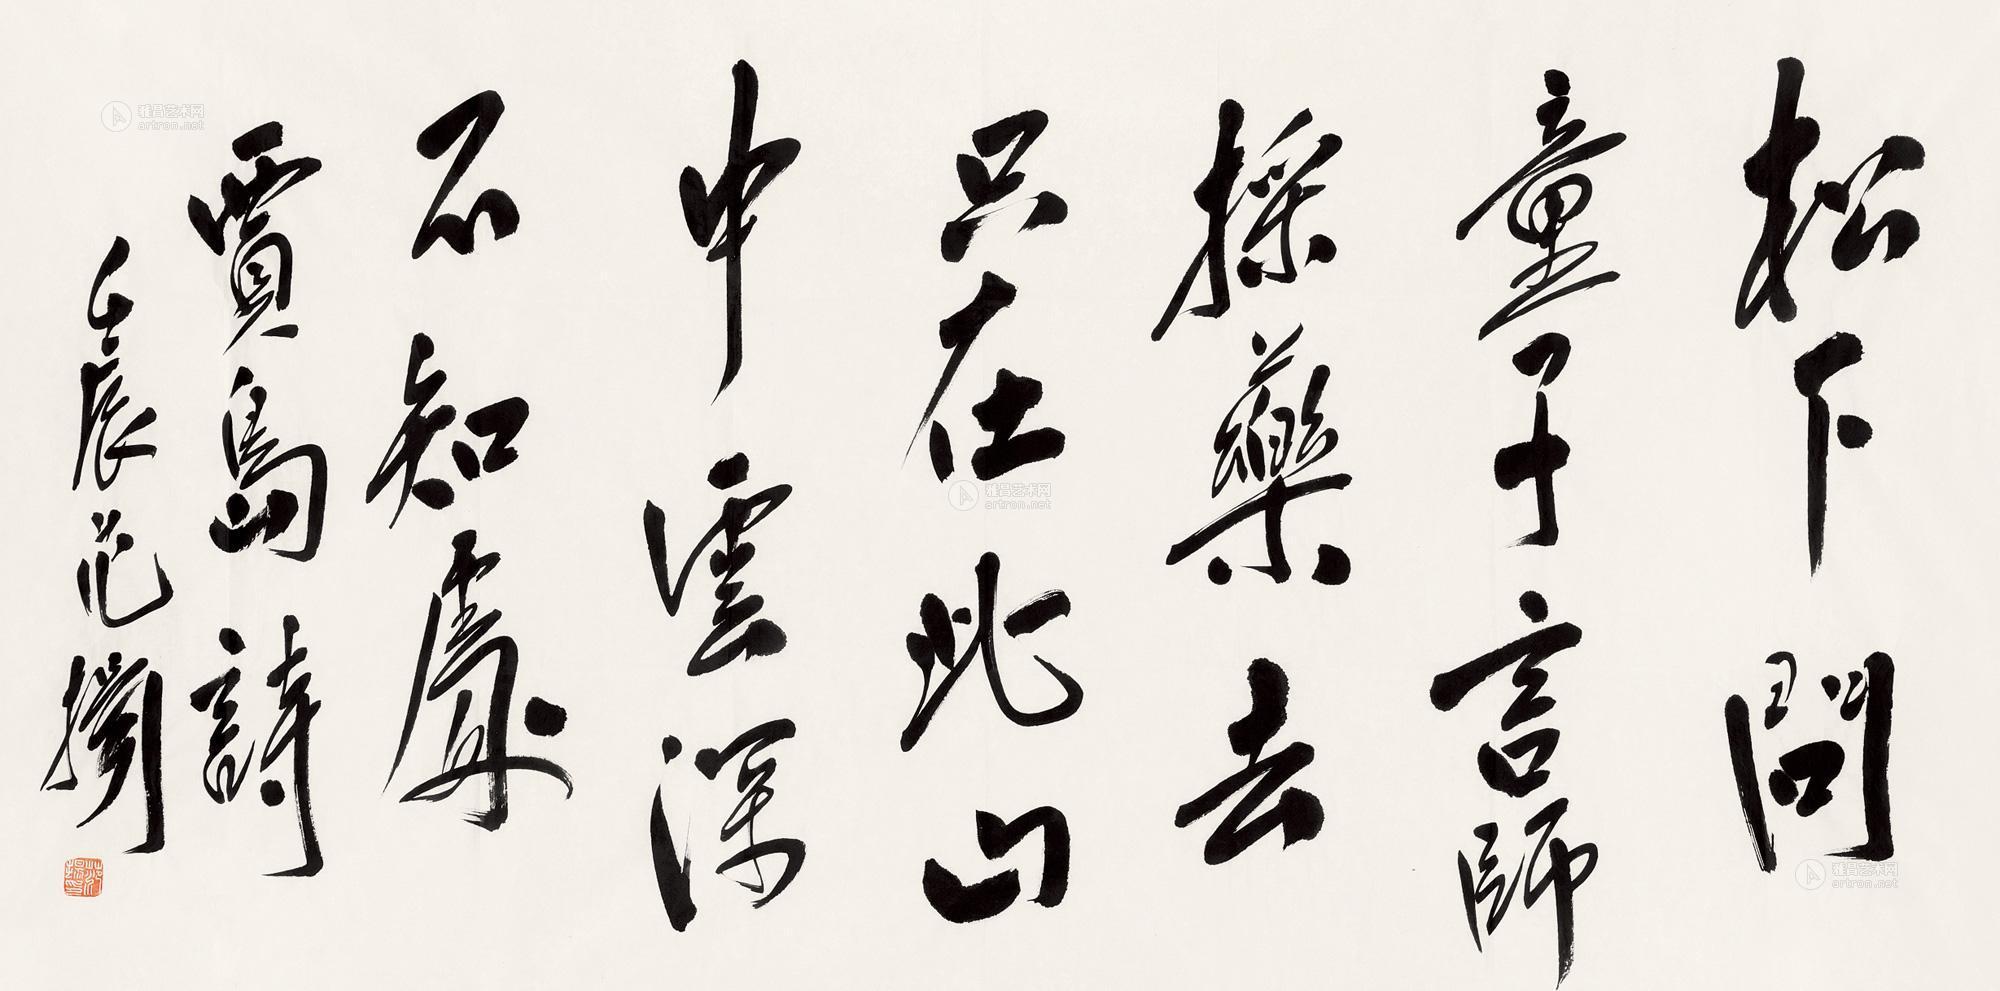 松下問
童子言師
採藥去
只在此山
中雲深
不知處
賈島詩
壬辰范揚
雅昌艺术网
artron.net
雅昌艺术网
artron.net
雅昌艺术网
artron.net